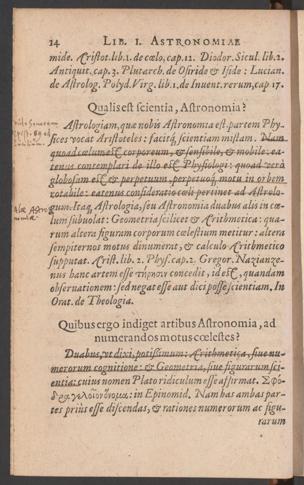 14 LIB. I. ASTRONOMIAE
mide. Aristot. lib. 1. de cœlo, cap. 12. Diodor. Sicul. lib. 2.
Antiquit. cap. 3. Plutarch. de Osiride & Iside: Lucian.
de Astrolog. Polyd. Virg. lib. 1. de Inuent. rerum, cap 17.
Qualis est scientia, Astronomia?
Astrologiam, quæ nobis Astronomia est, partem Phy-
sices vocat Aristoteles: facitq́; scientiam mistam. Nam
quoad cœlum est corporeum, & sensibile, & mobile: ea-
tenus contemplari de illo est Physiologi: quoad verò
globosum est & perpetuum, perpetuoq́; motu in orbem
rotabile: eatenus consideratio cœli pertinet ad Astrolo-
gum. Itaq; Astrologia, seu Astronomia duabus alis in cœ-
lum subuolat: Geometria scilicet & Arithmetica: qua-
rum altera figuram corporum cœlestium metitur: altera
sempiternos motus dinumerat, & calculo Arithmetico
supputat. Arist. lib. 2. Phys. cap. 2. Gregor. Nazianze-
nus hanc artem esse concedit, id est, quandam
obseruationem: sed negat esse aut dici posse scientiam. In
Orat. de Theologia.
Quibus ergo indiget artibus Astronomia, ad
numerandos motus cœlestes?
Duabus, vt dixi, potissimum: Arithmetica, siue nu-
merorum cognitione: & Geometria, siue figurarum sci-
entia: cuius nomen Plato ridiculum esse affirmat. Σφό-
δρα γελοῖον ὄνομα: in Epinomid. Nam has ambas par-
tes priùs esse discendas, & rationes numerorum ac figu-
rarum